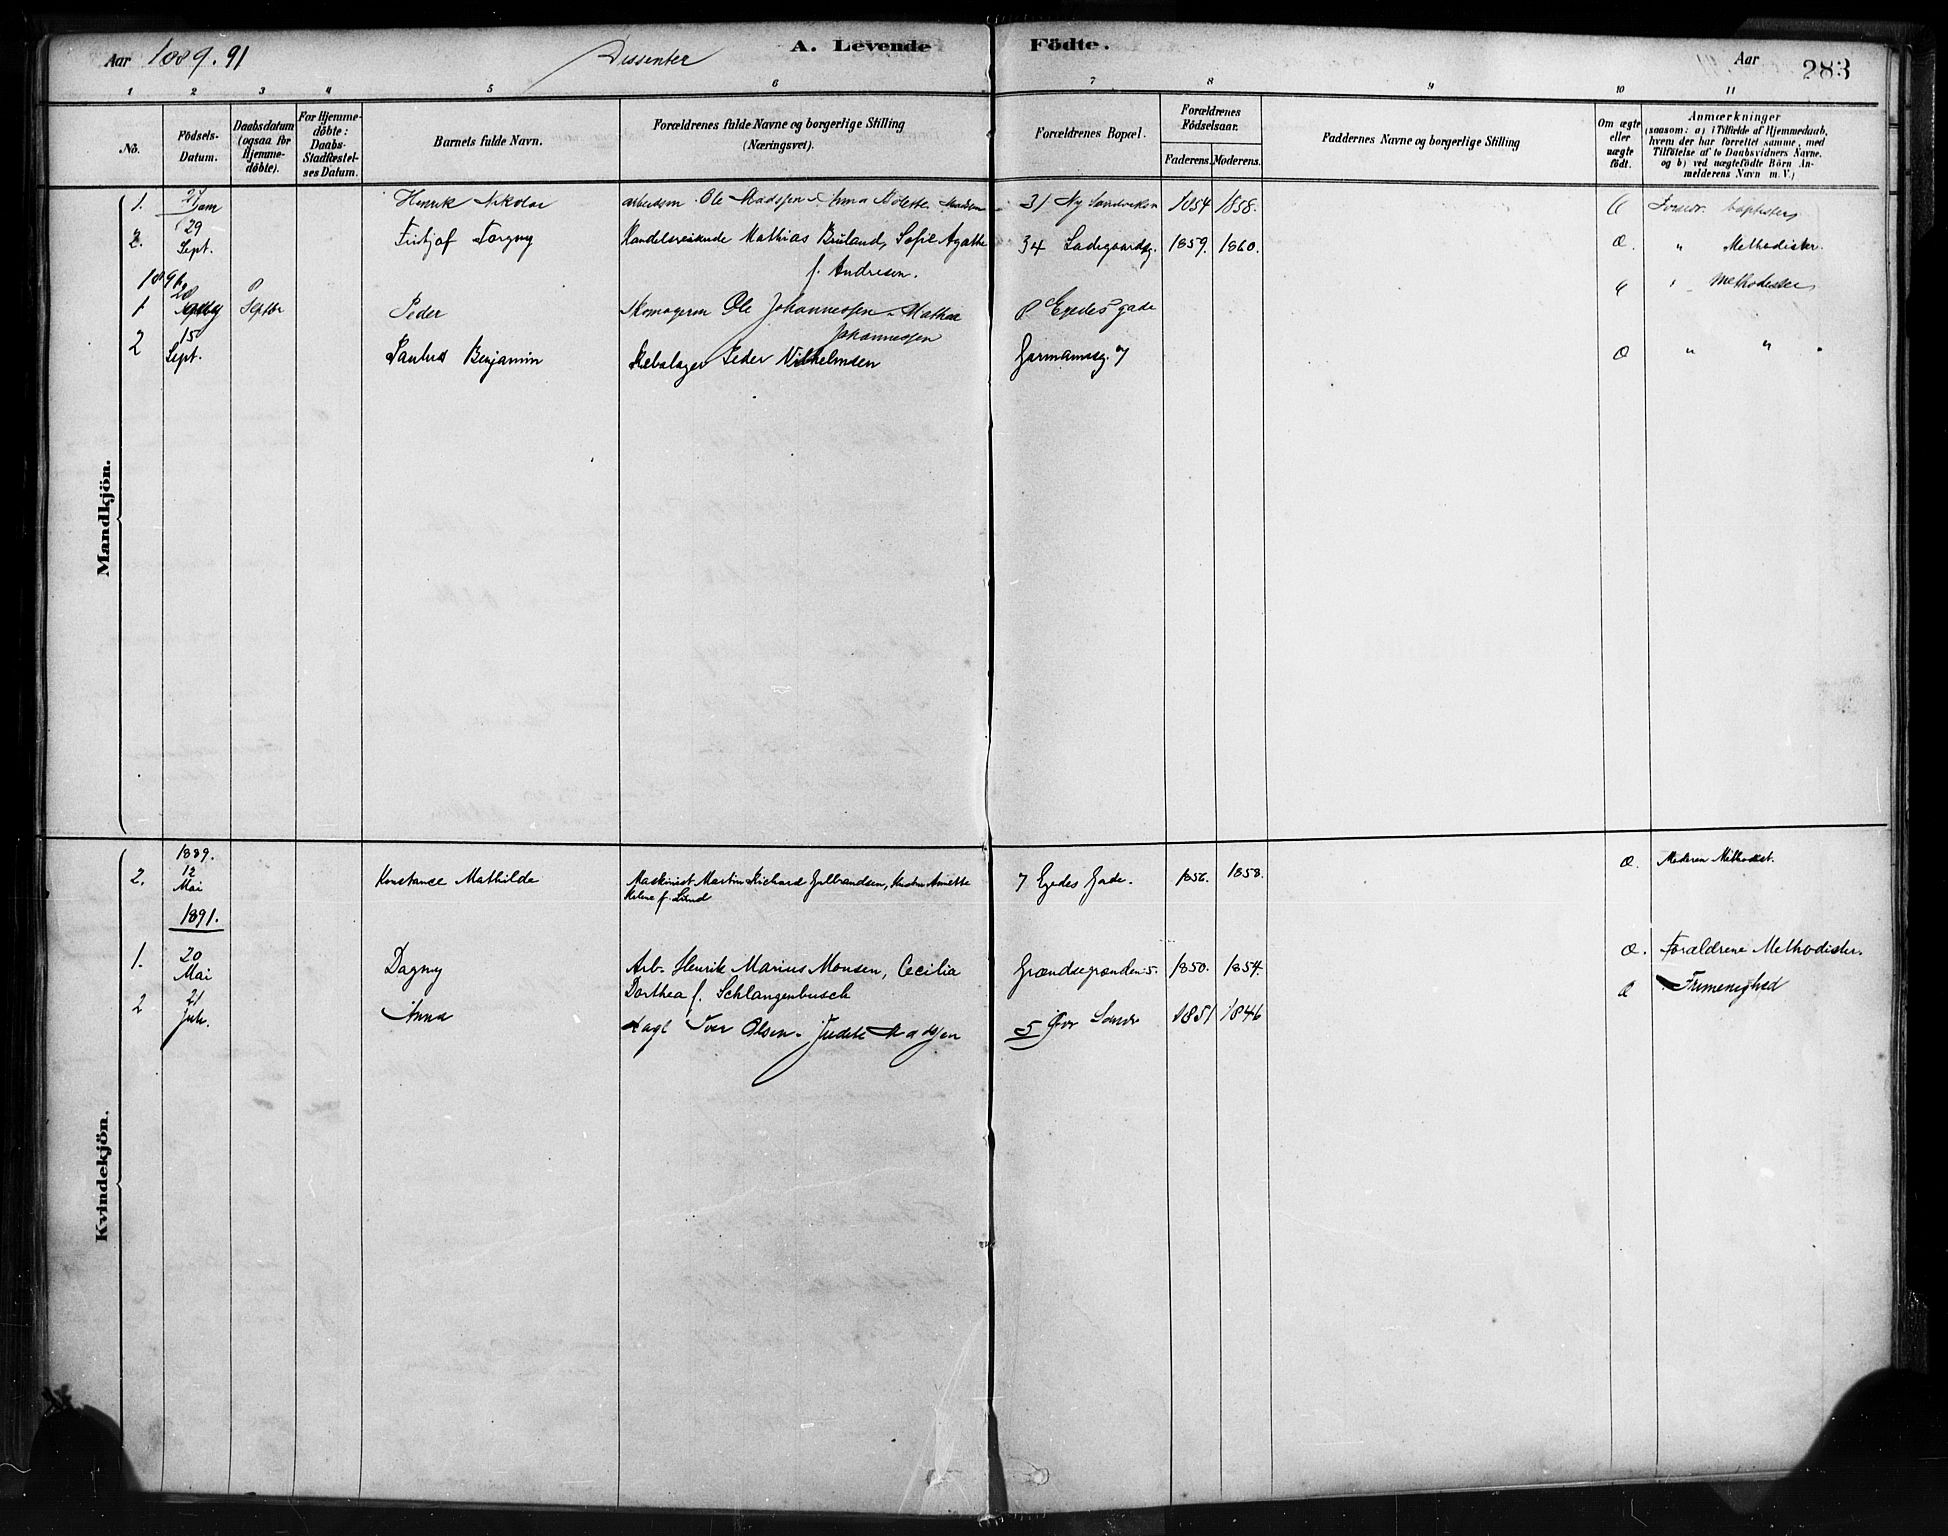 Aar 1889. 91 Dissenter A. Levende Födte. Aar 283
1 2 3 4 5 6 7 8 9 10 11
No. Födsels-Datum. Daabsdatum (ogsaa for Hjemme-döbte). For Hjemme-döbte: Daabs-Stadfæstel-ses Datum. Barnets fulde Navn. Forældrenes fulde Navne og borgerlige Stilling (Næringsvei). Forældrenes Bopæl. Forældrenes Födselsaar. Faderens. Moderens. Faddernes Navne og borgerlige Stilling Om ægte eller uægte födt. Anmærkninger (saasom: a) i Tilfælde af Hjemmedaab, hvem der har forrettet samme, med Tilföielse af to Daabsvidners Navne, og b) ved uægtefödte Börn An-melderens Navn m. V.)
Mandkjön.
1. 27 Jan Henrik Nikolai arbeidsm. Ole Madssen Anna 31 Ny Sandviksv 1854 1858. Æ Forældr. baptister
2. 29 Sept. Fritjof Torgny Handelsreisende Mathias Bruland, Sofie Agathe 34 Ladegaardsg. 1859. 1860. Æ. " Methodister.
f. Andresen.
1891
1 20 Septbr Peder Skomagerm Ole Johannessen. Mathea Johannessen 8 Egedes gade Æ " Methodister
2 15 Sept. Paulus Benjamin Rebslager Peder Vilhelmsen Formannsg. 7 Æ " " "
Kvindekjön.
1889.
2. 12 Mai Konstance Mathilde Maskinist Martin Richard Gulbrandsen, Hustru Annette 7 Egedes Gade. 1856. 1858. Æ. Moderen Methodist.
Helene f. Lund
1891.
1. 20 Mai Dagny Arb. Henrik Marius Monsen, Cecilia Grændsegrænden 5. 1850. 1854. Æ. Forældrene Methodister.
Dorthea f. Schlangenbusch
2 21 Juli. Anna Dagl Iver Olsen. Judith Madssen 5 Øvr Sandv 1851 1846 Æ Frimenighed